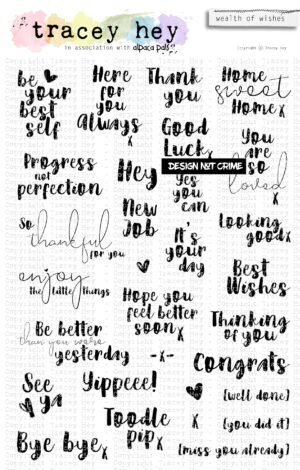 tracey hey
in association with alpaca pals
wealth of wishes
Copyright © Tracey Hey
be
your
best
self
Here
for
you
Always
x
Thank
you
Home
sweet
Home x
Good
Luck x
DESIGN NOT CRIME
You
are
so
loved
x
Progress
not
perfection
Hey
Yes
you
can
New
Job
Looking
good x
So
thankful
for you
It's
your
day
enjoy
the little things
Best
Wishes
Hope you
feel better
soon x
Thinking
of you
x
Be better
than you were
yesterday
-x-
Congrats
See
ya
Yippeee!
[well done]
Toodle
pip x
x
[you did it]
Bye bye x
[miss you already]